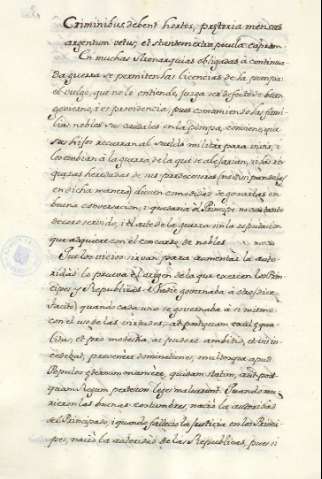 Criminibus debent hortos, prætoria, mensas
argentum vetus, et stantem extra pocula caprum.
En muchas Monarquias obligadas à continua
Da guerra se permiten las licencias de la pompa:
el vulgo, que no lo entiende, juzga ser defecto de buen
govierno, i es providencia, pues consumiendo las fami-
lias nobles sus caudales en la pompa, conviene, que
sus hijos recurran al sueldo militar para vivir, i
los cambian à la guerra de la que se alejarian, si las ri-
quezas heredadas de sus
en dicha manera) dieren comodidad de gozarlas en
buena conversacion, i quedaria el Principe
decoro servido, i el arte de la guerra sin la reputacion
que adquiere con el concurso de nobles.
Pues los vicios sirvan para aumentar la auto-
ridad, lo prueva el origen de la que exercen los Prin-
cipes y Republicas. Nadie governaba à otros (dice
Tacito) quando cada uno se governaba à si mismo
con el uso de las virtudes; at postquam exui æqua-
litas, et pro modestia ac pudore ambitio, et vis in-
cedebat, provenere dominationes, multosque apud
Populos æternum mansere, quidam statim, aut post-
quam Regum pertæsum leges maluerunt. Quando mu-
rieron las buenas costumbres nació la autoridad
del Principado, i quando faltó la justicia en los Princi-
pes, nació la autoridad de las Republicas, pues si